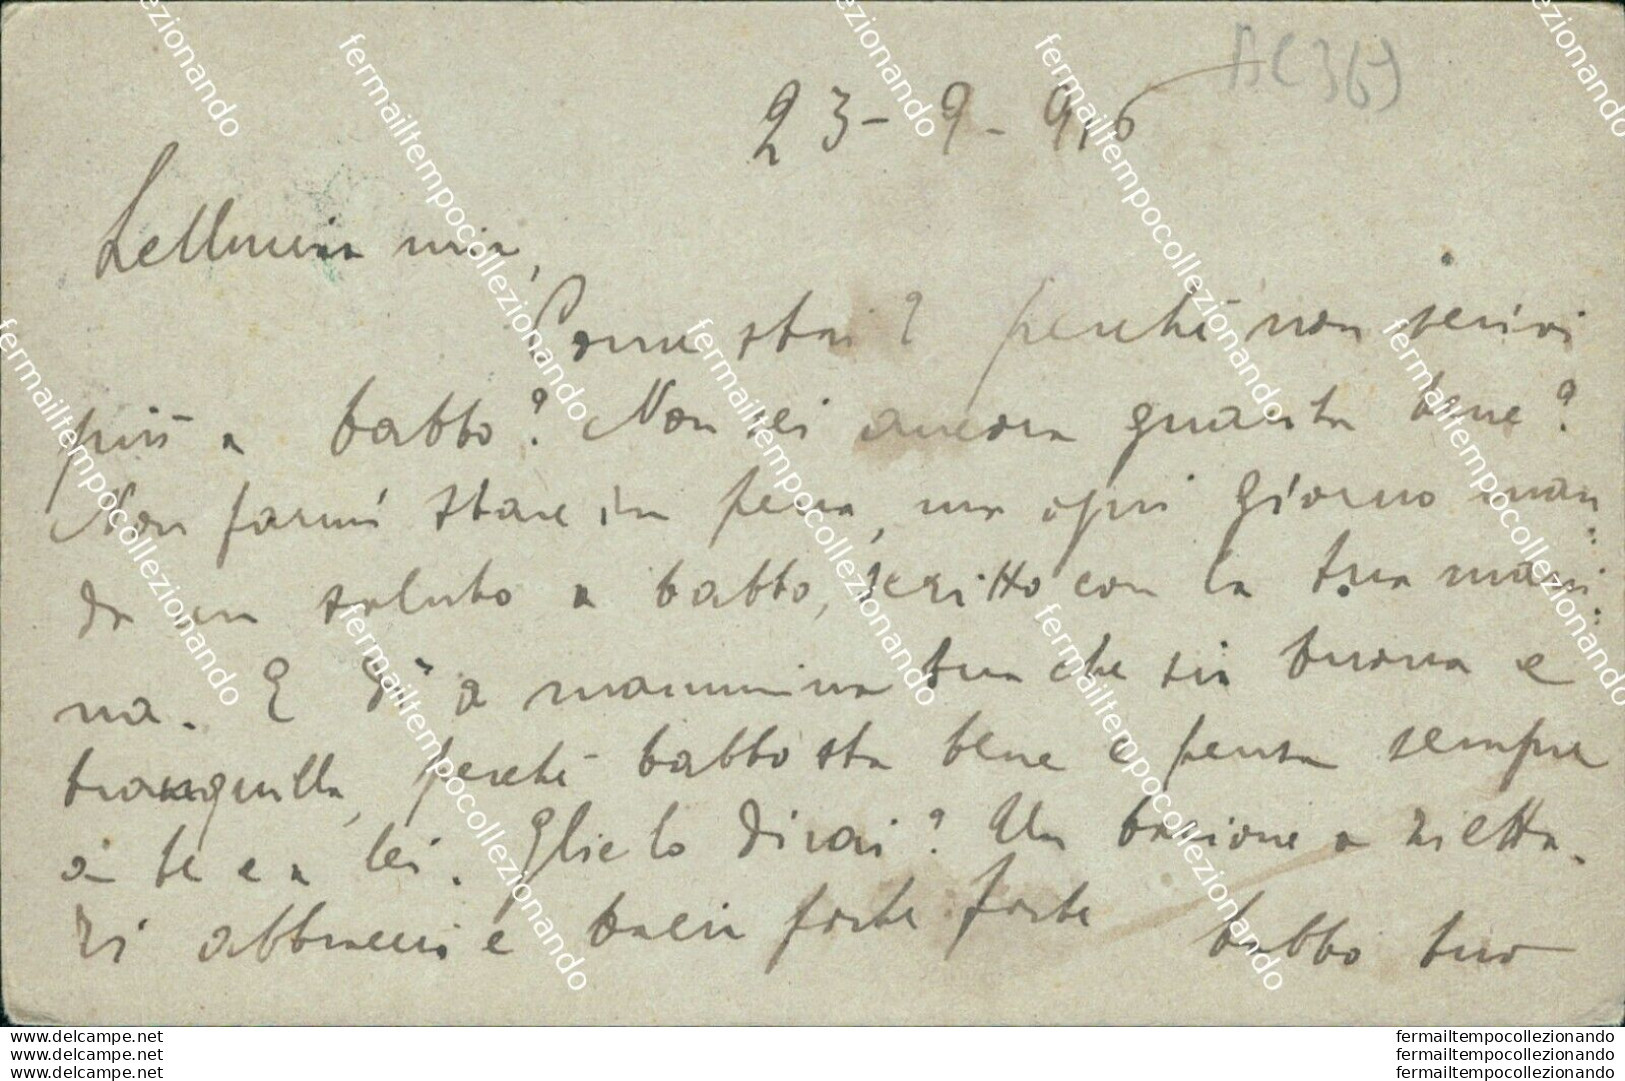 AC369
23-9-916
Lellinina mia,
Come stai? perché non scrivi
più a babbo? Non sei ancora guarita bene?
Non farmi stare in pena, ma ogni giorno man
da un saluto a babbo, scritto con la tua mani
na. E di' a mammina tua che sia buona e
tranquilla, perché babbo sta bene e pensa sempre
a te e a lei. Glielo dirai? Un bacione a zietta.
Ti abbraccio e bacia forte forte babbo tuo
fermailtempocollezionando
www.delcampe.net
www.delcampe.net
www.delcampe.net
fermailtempocollezionando
fermailtempocollezionando
fermailtempocollezionando